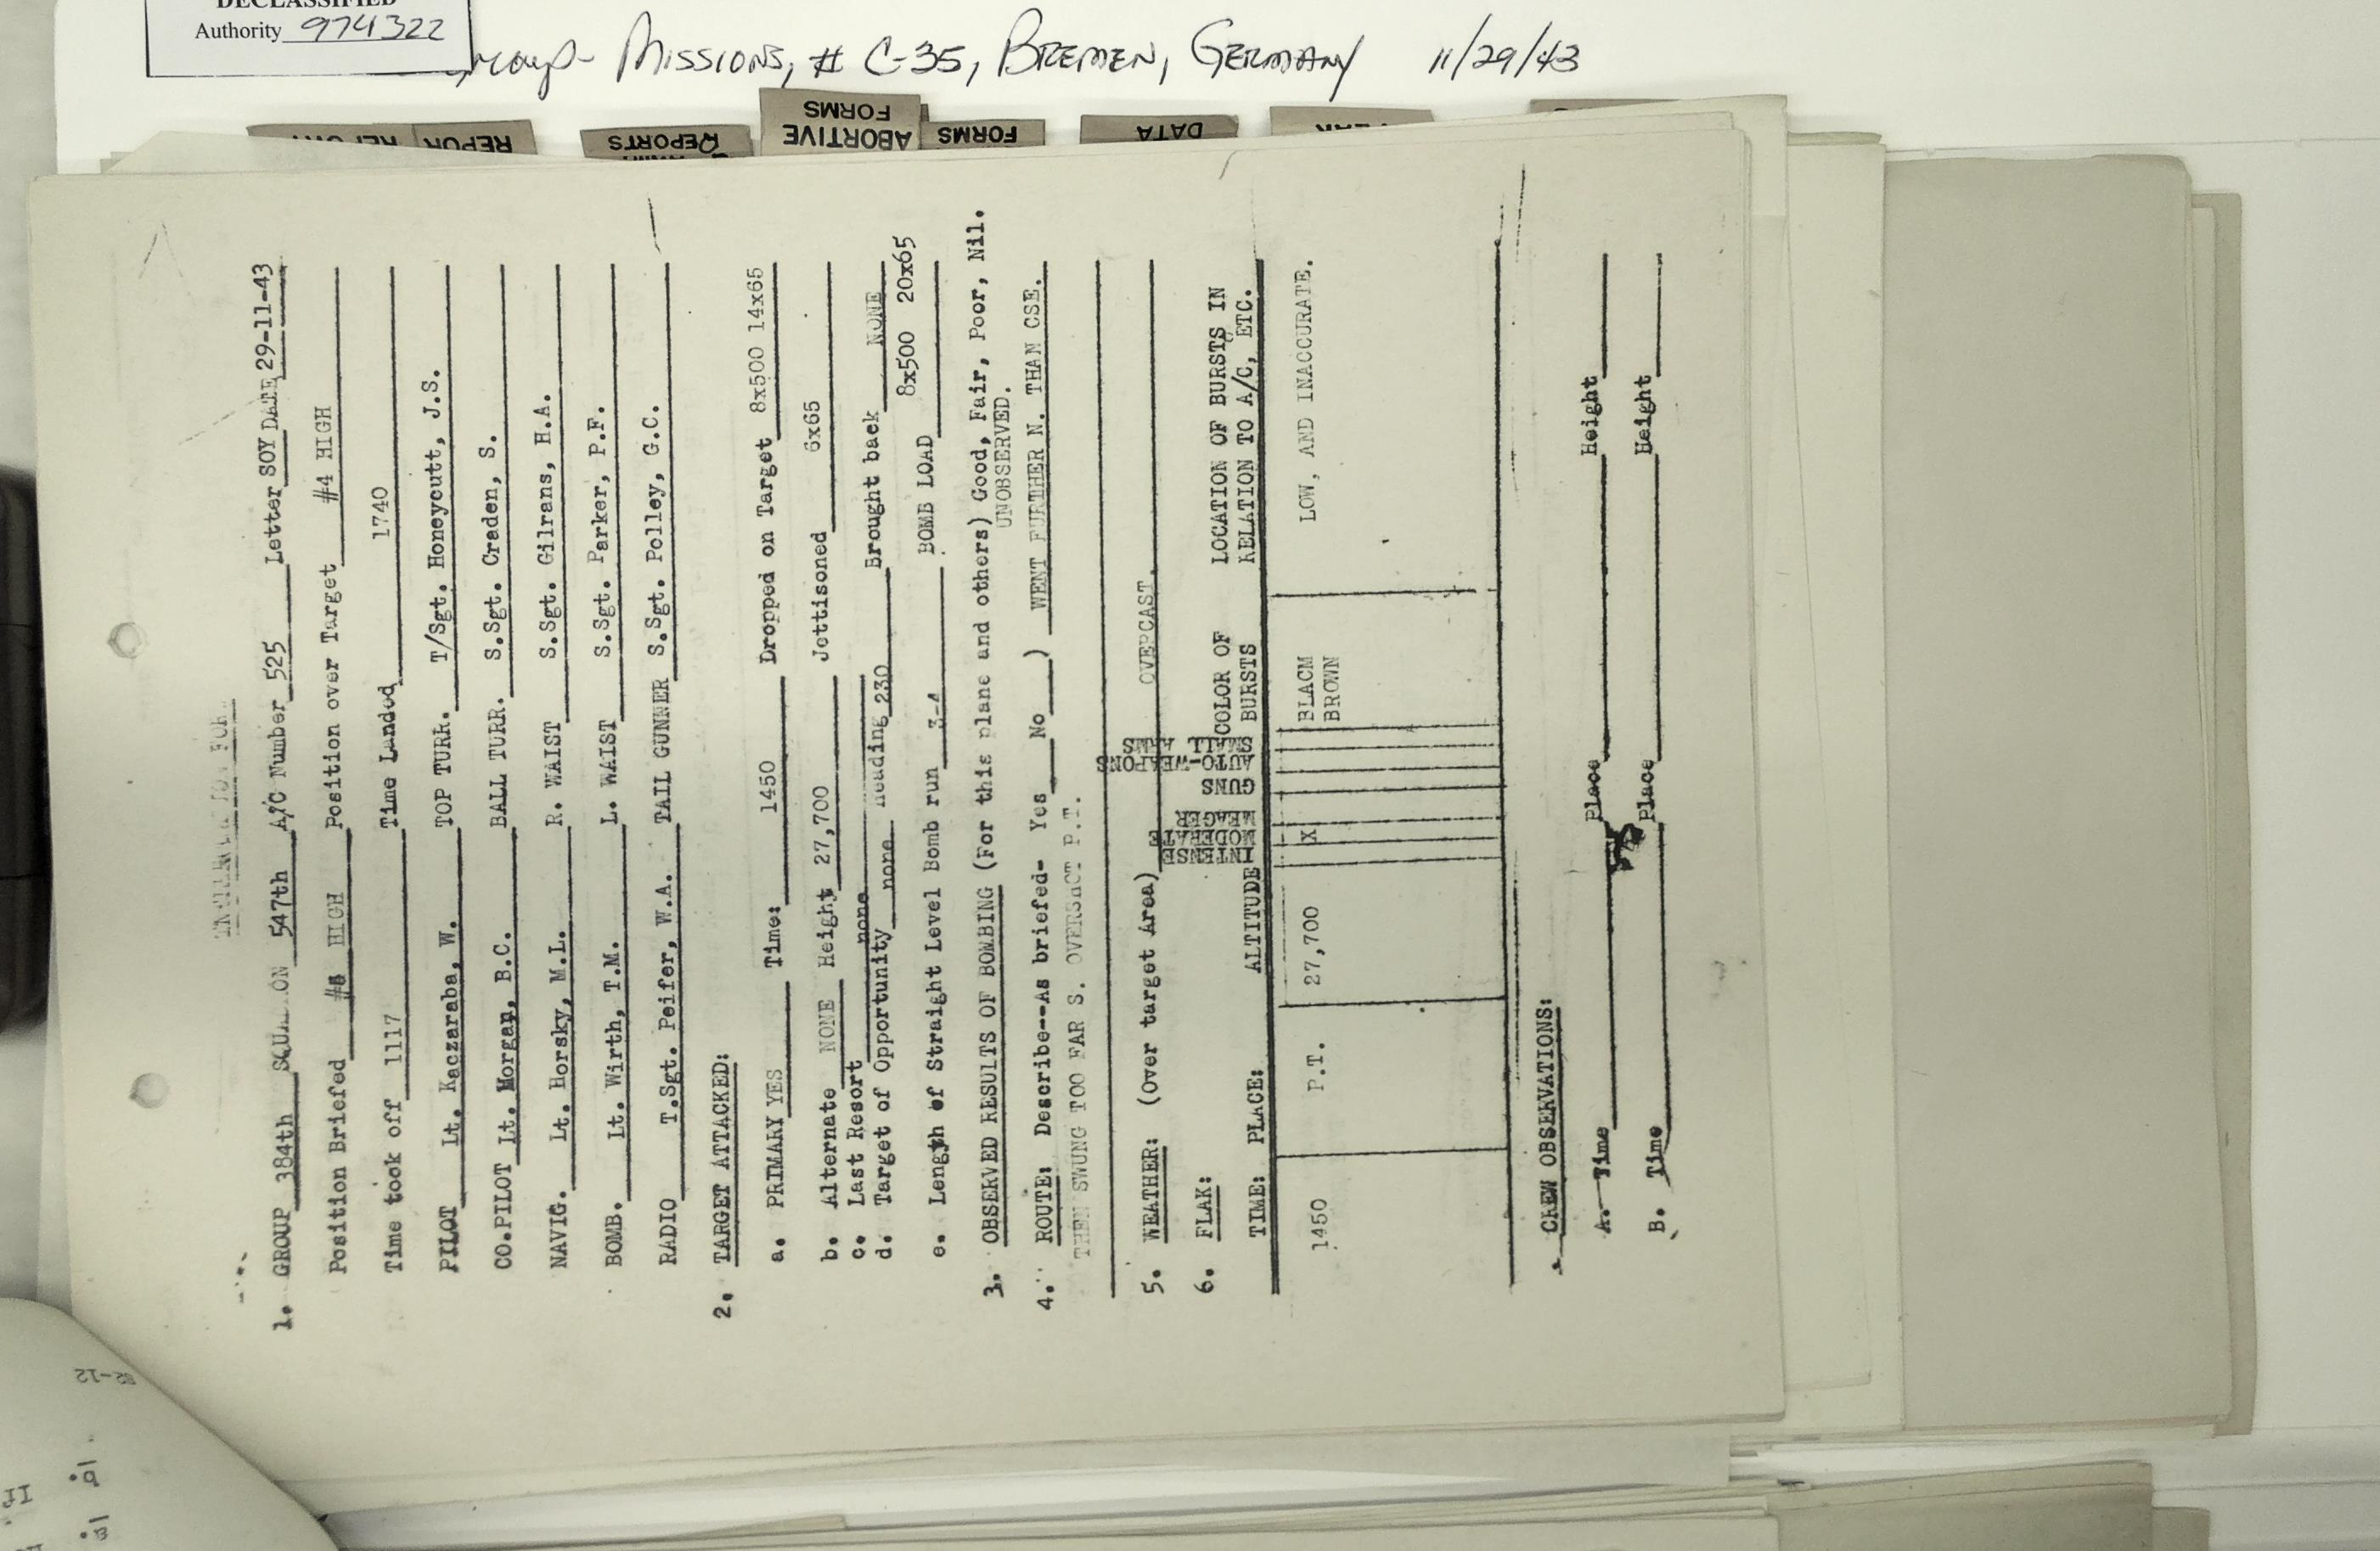 DECLASSIFIED
Authority 974322
Missions, # C-35, Bremen, Germany 11/29/43
REPOR
REPORTS
ABORTIVE
FORMS
FORMS
DATA
INTERROGATION FORM
1. GROUP 384th SQUADRON 547th A/C Number 525 Letter SOY DATE 29-11-43
Position Briefed HIGH Position over Target #4 HIGH
Time took off 1117 Time Landed 1740
PILOT Lt. Kaczaraba, W. TOP TURR. T/Sgt. Honeycutt, J.S.
CO.PILOT Lt. Morgan, B.C. BALL TURR. S.Sgt. Craden, S.
NAVIG. Lt. Horsky, M.L. R. WAIST S.Sgt. Gilrans, H.A.
BOMB. Lt. Wirth, T.M. L. WAIST S.Sgt. Parker, P.F.
RADIO T.Sgt. Peifer, W.A. TAIL GUNNER S.Sgt. Polley, G.C.
2. TARGET ATTACKED:
a. PRIMARY YES Time: 1450 Dropped on Target 8x500 14x65
b. Alternate NONE Height 27,700 Jettisoned 6x65
c. Last Resort none
d. Target of Opportunity none Heading 230 Brought back NONE
e. Length of Straight Level Bomb run 3-4 BOMB LOAD 8x500 20x65
3. OBSERVED RESULTS OF BOMBING (For this plane and others) Good, Fair, Poor, Nil.
UNOBSERVED.
4. ROUTE: Describe--As briefed- Yes No ) WENT FURTHER N. THAN CSE.
THEN SWUNG TOO FAR S. OVERSHOT P.T.
5. WEATHER: (Over target Area) OVERCAST.
6. FLAK:
TIME: PLACE: ALTITUDE INTENSE MODERATE MEAGER GUNS AUTO-WEAPONS SMALL ARMS COLOR OF BURSTS LOCATION OF BURSTS IN RELATION TO A/C, ETC.
1450 P.T. 27,700 X BLACM BROWN LOW, AND INACCURATE.
CREW OBSERVATIONS:
A. Time Place Height
B. Time Place Height